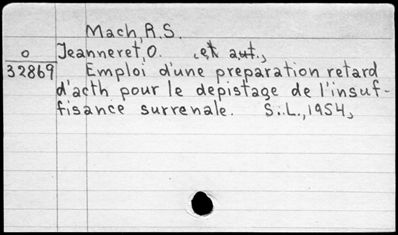 Mach, R.S.
o Jeanneret, O. et aut.,
32869 Emploi d'une preparation retard
d'acth pour le depistage de l'insuf-
fisance surrenale. S.L., 1954,